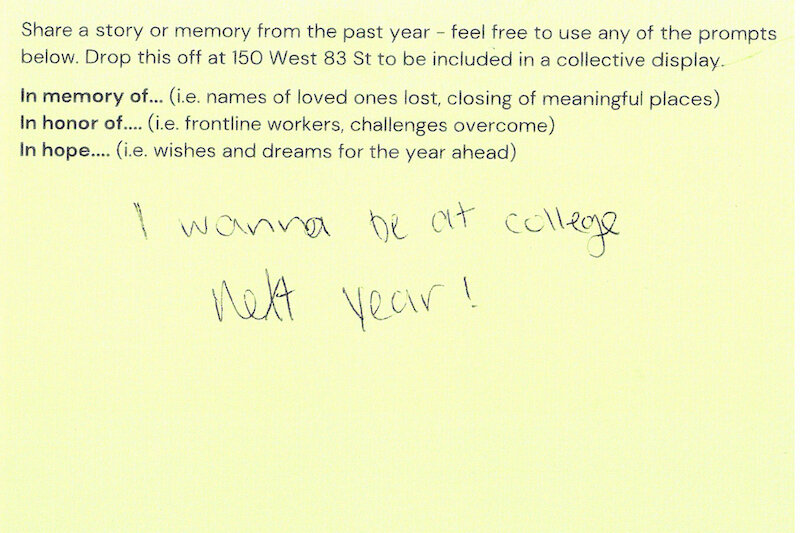 Share a story or memory from the past year - feel free to use any of the prompts
below. Drop this off at 150 West 83 St to be included in a collective display.
In memory of... (i.e. names of loved ones lost, closing of meaningful places)
In honor of.... (i.e. frontline workers, challenges overcome)
In hope.... (i.e. wishes and dreams for the year ahead)
I wanna be at college
Next year!